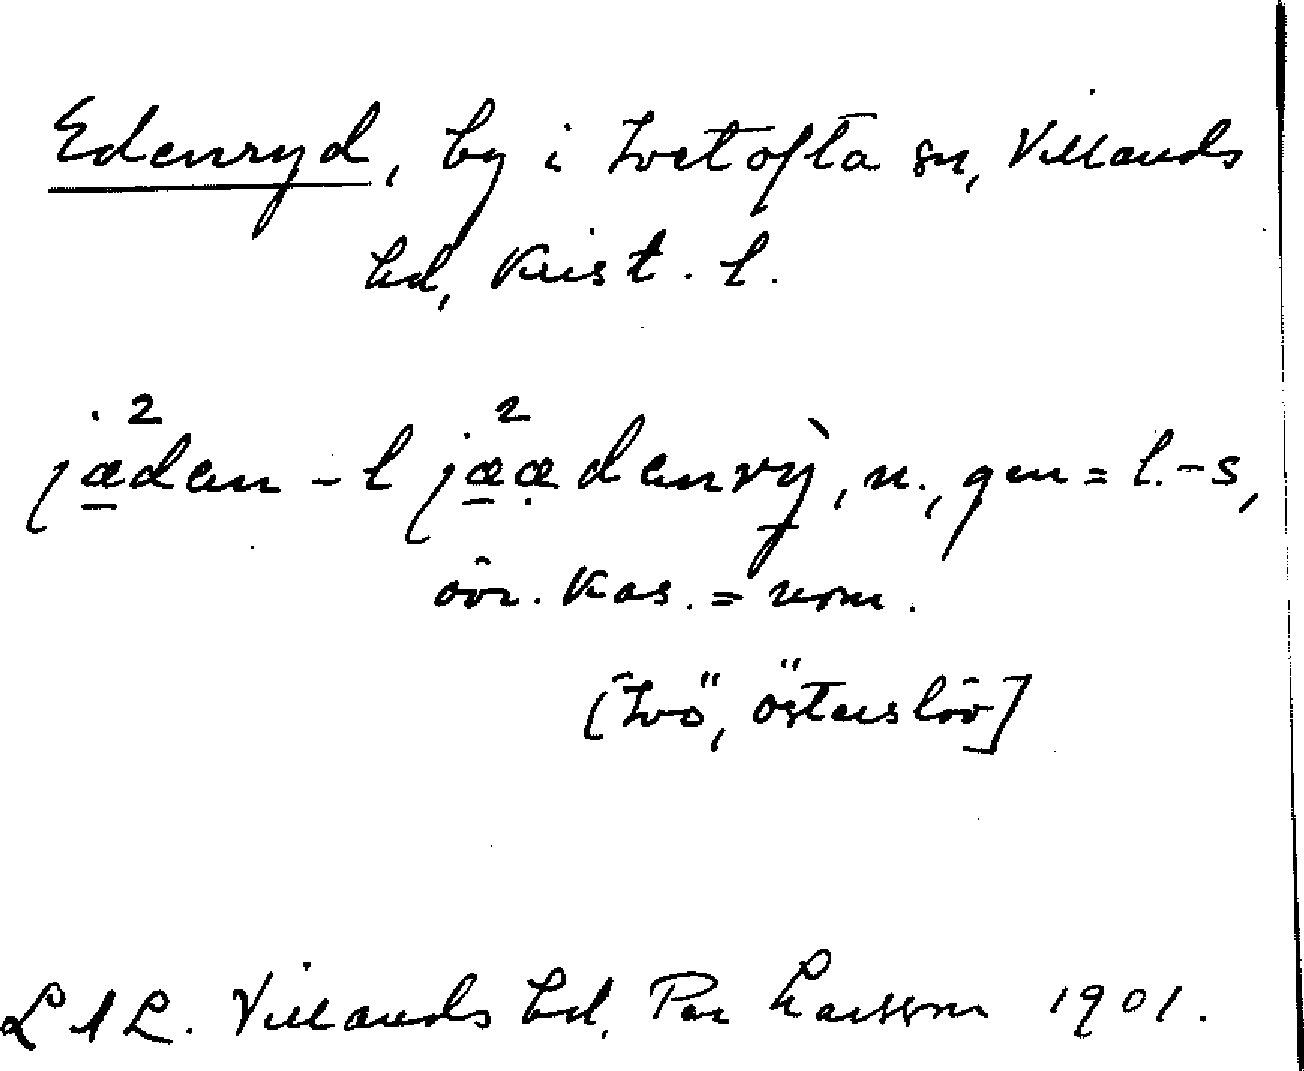 Edenryd, by i Ivetofta sn, Villands
hd, Krist. l.
jæ²den - l jæ²æden rỳ, n., gen = l. -s,
övr. kas. = nom.
[Ivö, Österslöv]
LAL. Villands hd, Per Larsson 1901.